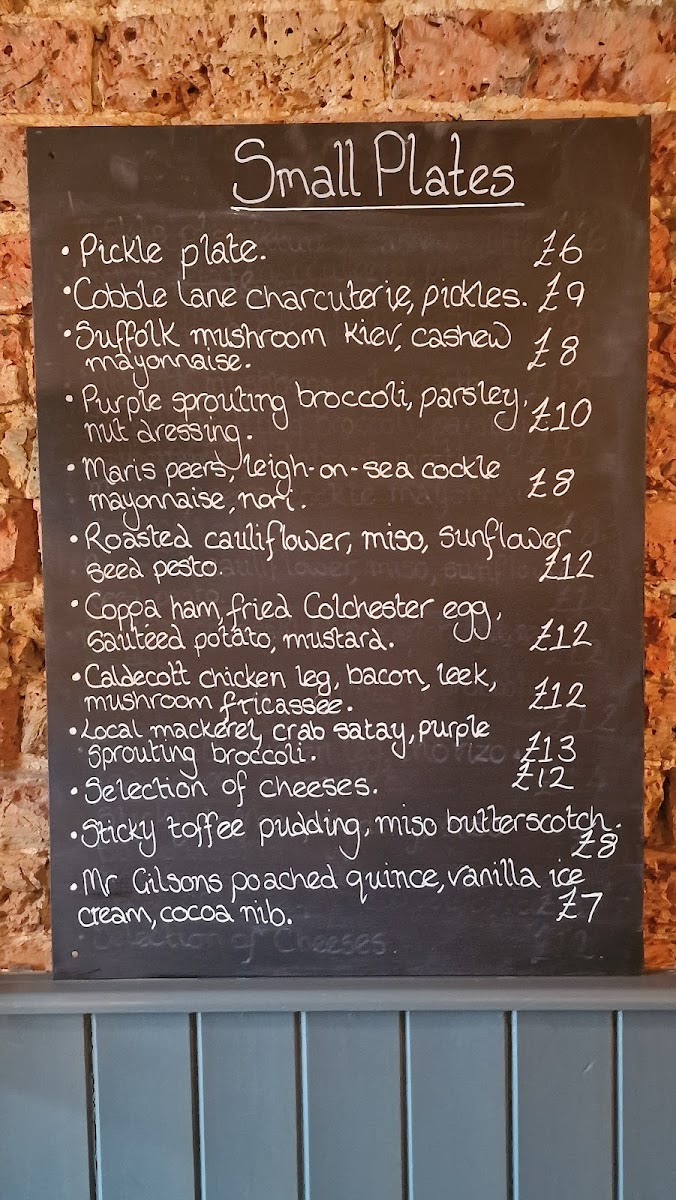 Small Plates
• Pickle plate. £6
• Cobble lane charcuterie, pickles. £9
• Suffolk mushroom kiev, cashew
mayonnaise. £8
• Purple sprouting broccoli, parsley,
nut dressing. £10
• Maris peers, leigh-on-sea cockle
mayonnaise, nori. £8
• Roasted cauliflower, miso, sunflower
seed pesto. £12
• Coppa ham, fried Colchester egg,
sautéed potato, mustard. £12
• Caldecott chicken leg, bacon, leek,
mushroom fricassée. £12
• Local mackerel, crab satay, purple
sprouting broccoli. £13
• Selection of cheeses. £12
• Sticky toffee pudding, miso butterscotch.
£8
• Mr Gilsons poached quince, vanilla ice
cream, cocoa nib. £7
Selection of Cheeses. £12.